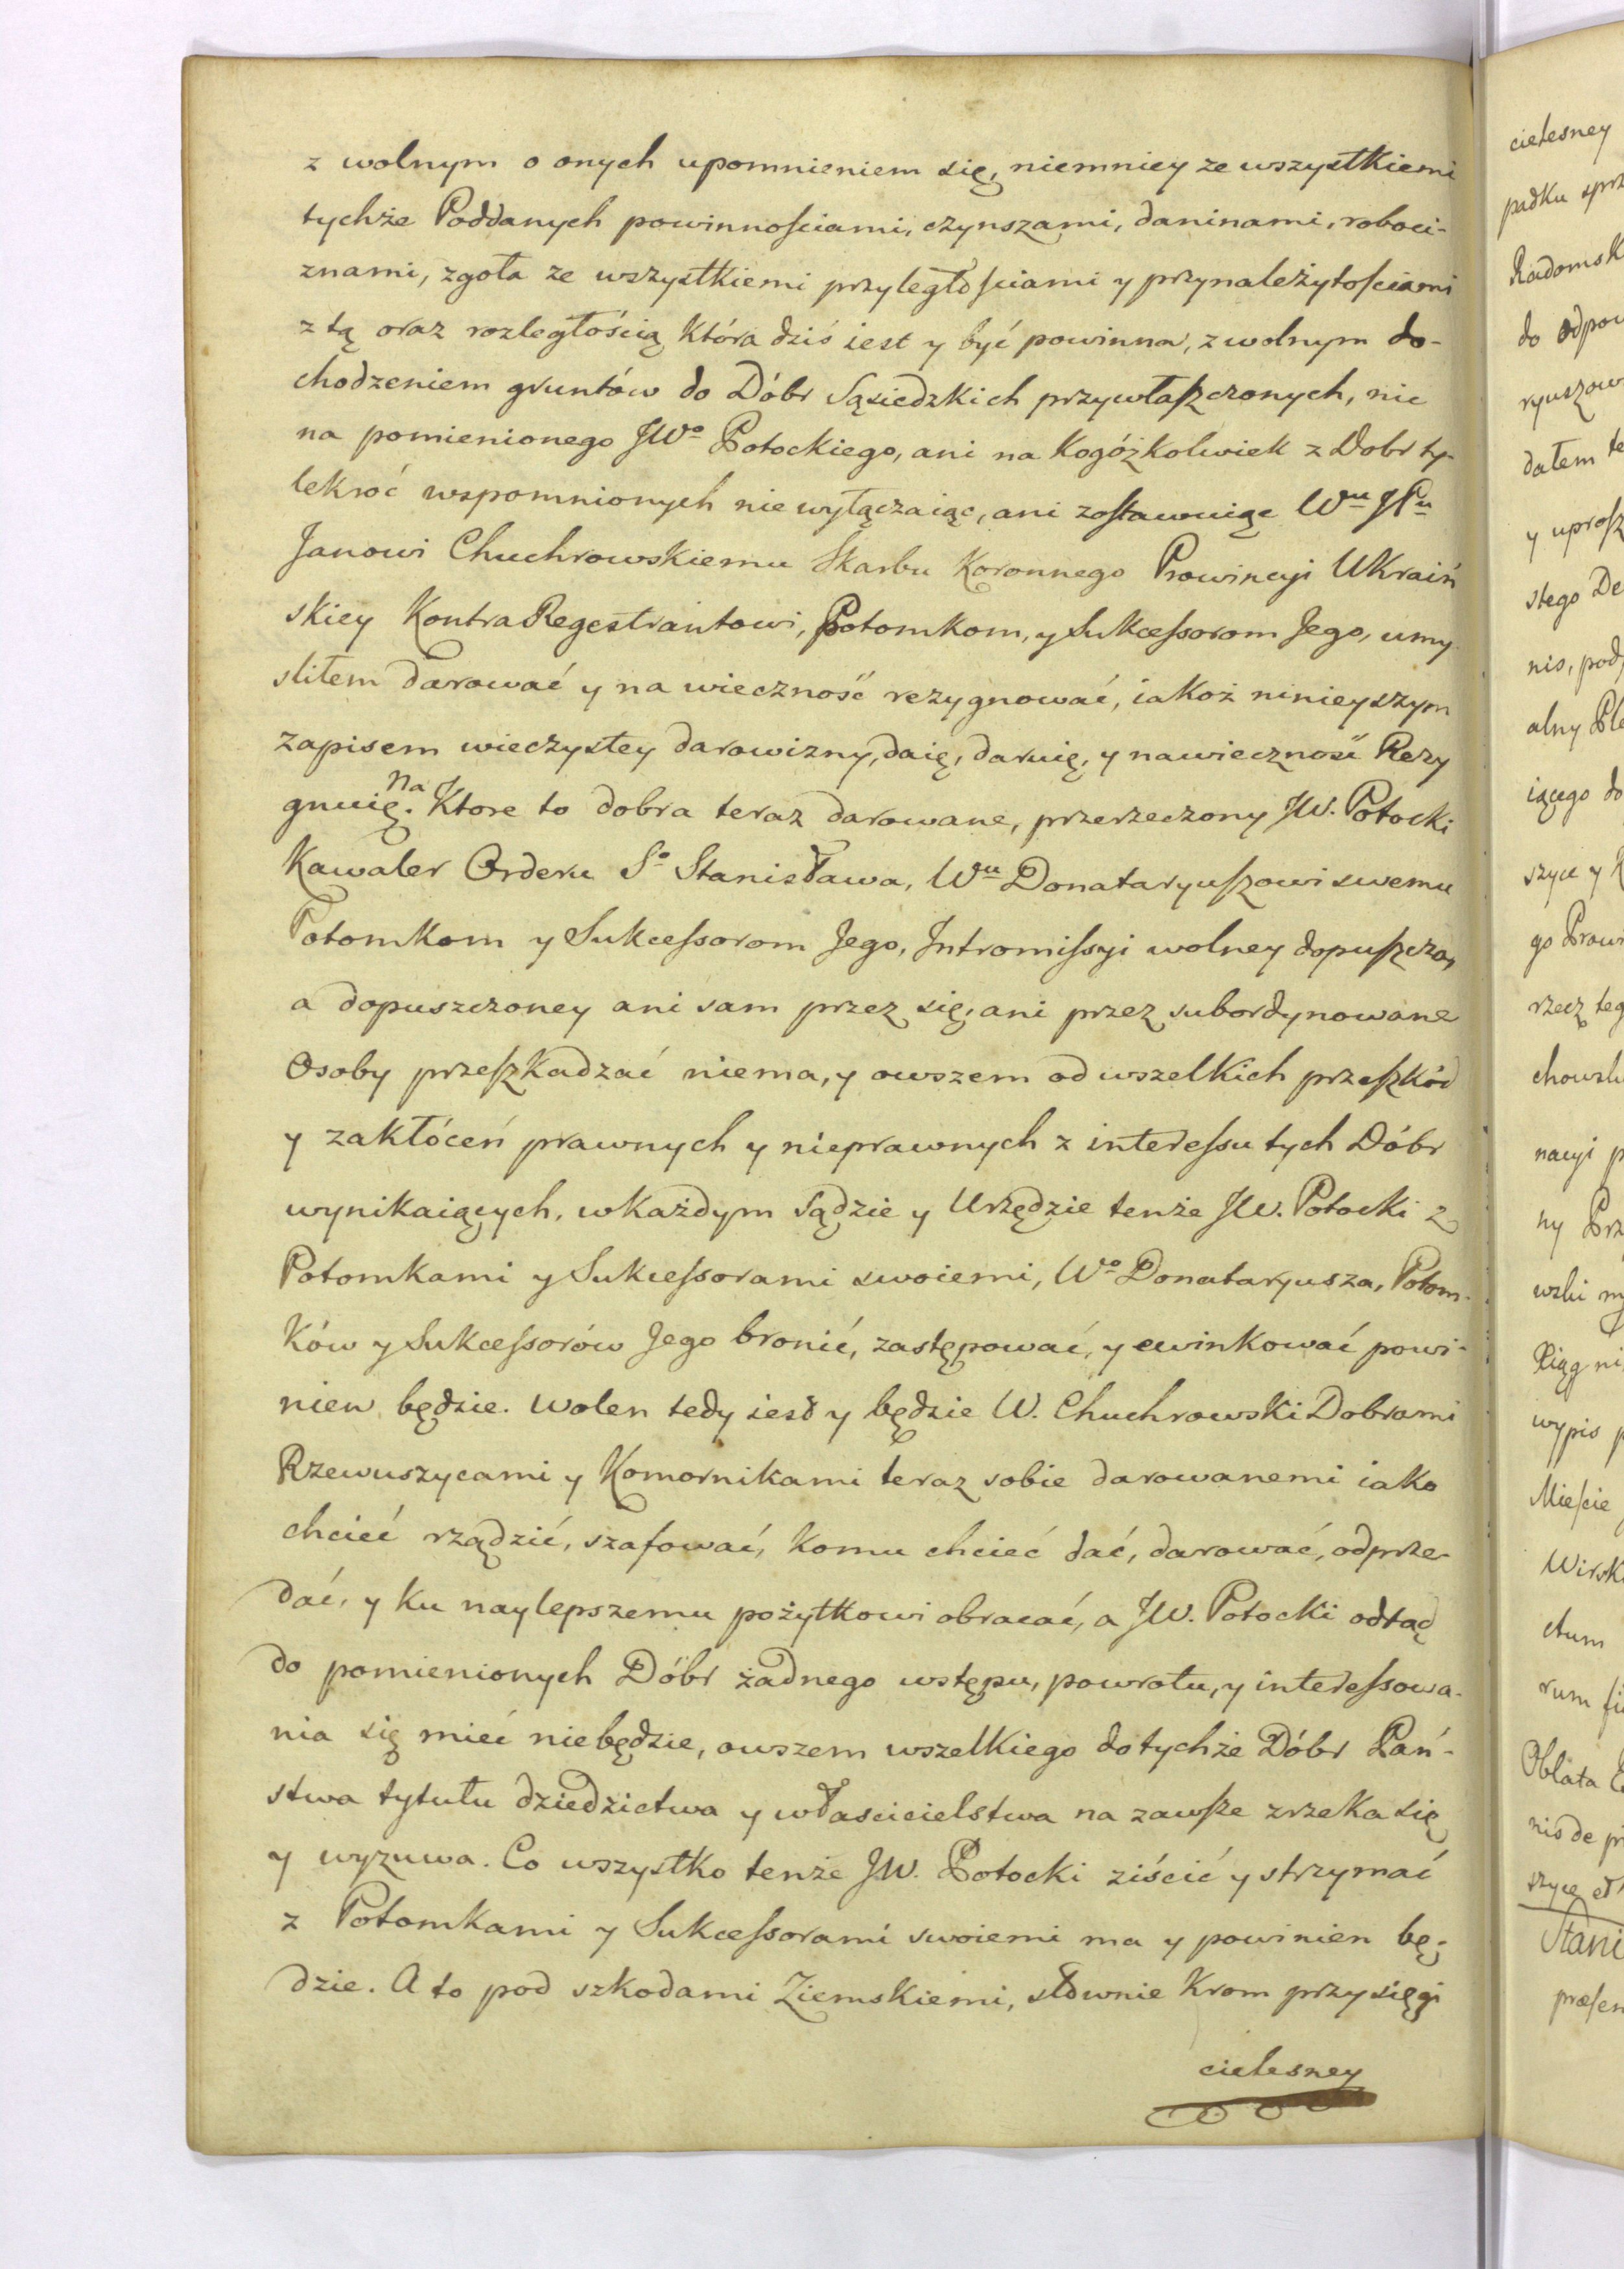 z wolnym o onych upomnieniem się, niemniey ze wszystkiemi
tychże Poddanych powinnościami, czynszami, daninami, roboci-
znami, zgoła ze wszystkiemi przyległościami y przynależytościami
z tą oraz rozległością która dziś iest y być powinna, z wolnym do-
chodzeniem gruntów do Dóbr Sąsiedzkich przywłaszczonych, nic
na pomienionego JWo Potockiego, ani na kogóżkolwiek z Dobr ty-
lekroć wspomnionych nie wyłączaiąc, ani zostawuiąc Wu JPu
Janowi Chuchrowskiemu Skarbu Koronnego Prowincyi Ukraiń
skiey KontraRegestrantowi, Potomkom, y Sukcessorom Jego, umy
sliłem darować y na wieczność rezygnować, iakoż ninieyszym
zapisem wieczystey darowizny, daię, daruię, y nawieczność Rezy
gnuię. Na Ktore to dobra teraz darowane, przerzeczony JW. Potocki
Kawaler Orderu So Stanisława, Wu Donataryuszowi swemu
Potomkom y Sukcessorom Jego, Intromissyi wolney dopuszcza,
a dopuszczoney ani sam przez się, ani przez subordynowane
Osoby przeszkadzać niema, y owszem od wszelkich przeszkód
y zakłóceń prawnych y nieprawnych z interessu tych Dóbr
wynikaiących, wkażdym Sądzie y Urzędzie tenże JW. Potocki z
Potomkami y Sukcessorami swoiemi, Wo Donataryusza, Potom-
ków y Sukcessorów Jego bronić, zastępować, y ewinkować powi-
nien będzie. Wolen tedy iest y będzie W. Chuchrowski Dobrami
Rzewuszycami y Komornikami teraz sobie darowanemi iako
chcieć rządzić, szafować, komu chcieć dać, darować, odprze-
dać, y ku naylepszemu pożytkowi obracać, a JW. Potocki odtąd
do pomienionych Dóbr żadnego wstępu, powrotu, y interessowa-
nia się mieć niebędzie, owszem wszelkiego do tychże Dóbr Pań-
stwa tytułu dziedzictwa y własicielstwa na zawsze zrzeka się
y wyzuwa. Co wszystko tenże JW. Potocki ziścić y strzymać
z Potomkami y Sukcessorami swoiemi ma y powinien bę-
dzie. A to pod szkodami Ziemskiemi, słownie krom przysięgi
cielesney
cielesney
padku
Radomsk
do odpow
ryuszow
dałem te
y uprosz
stego De
nis, pod
alny
iącego do
szyce y
go Praw
rzecz teg
chowsk
nacyi p
ny Prz
wski
Xiąg ni
wypis p
Mieście
Wirsk
ctum
rum
Oblata
nis de pr
szyce et
Stani
præsen